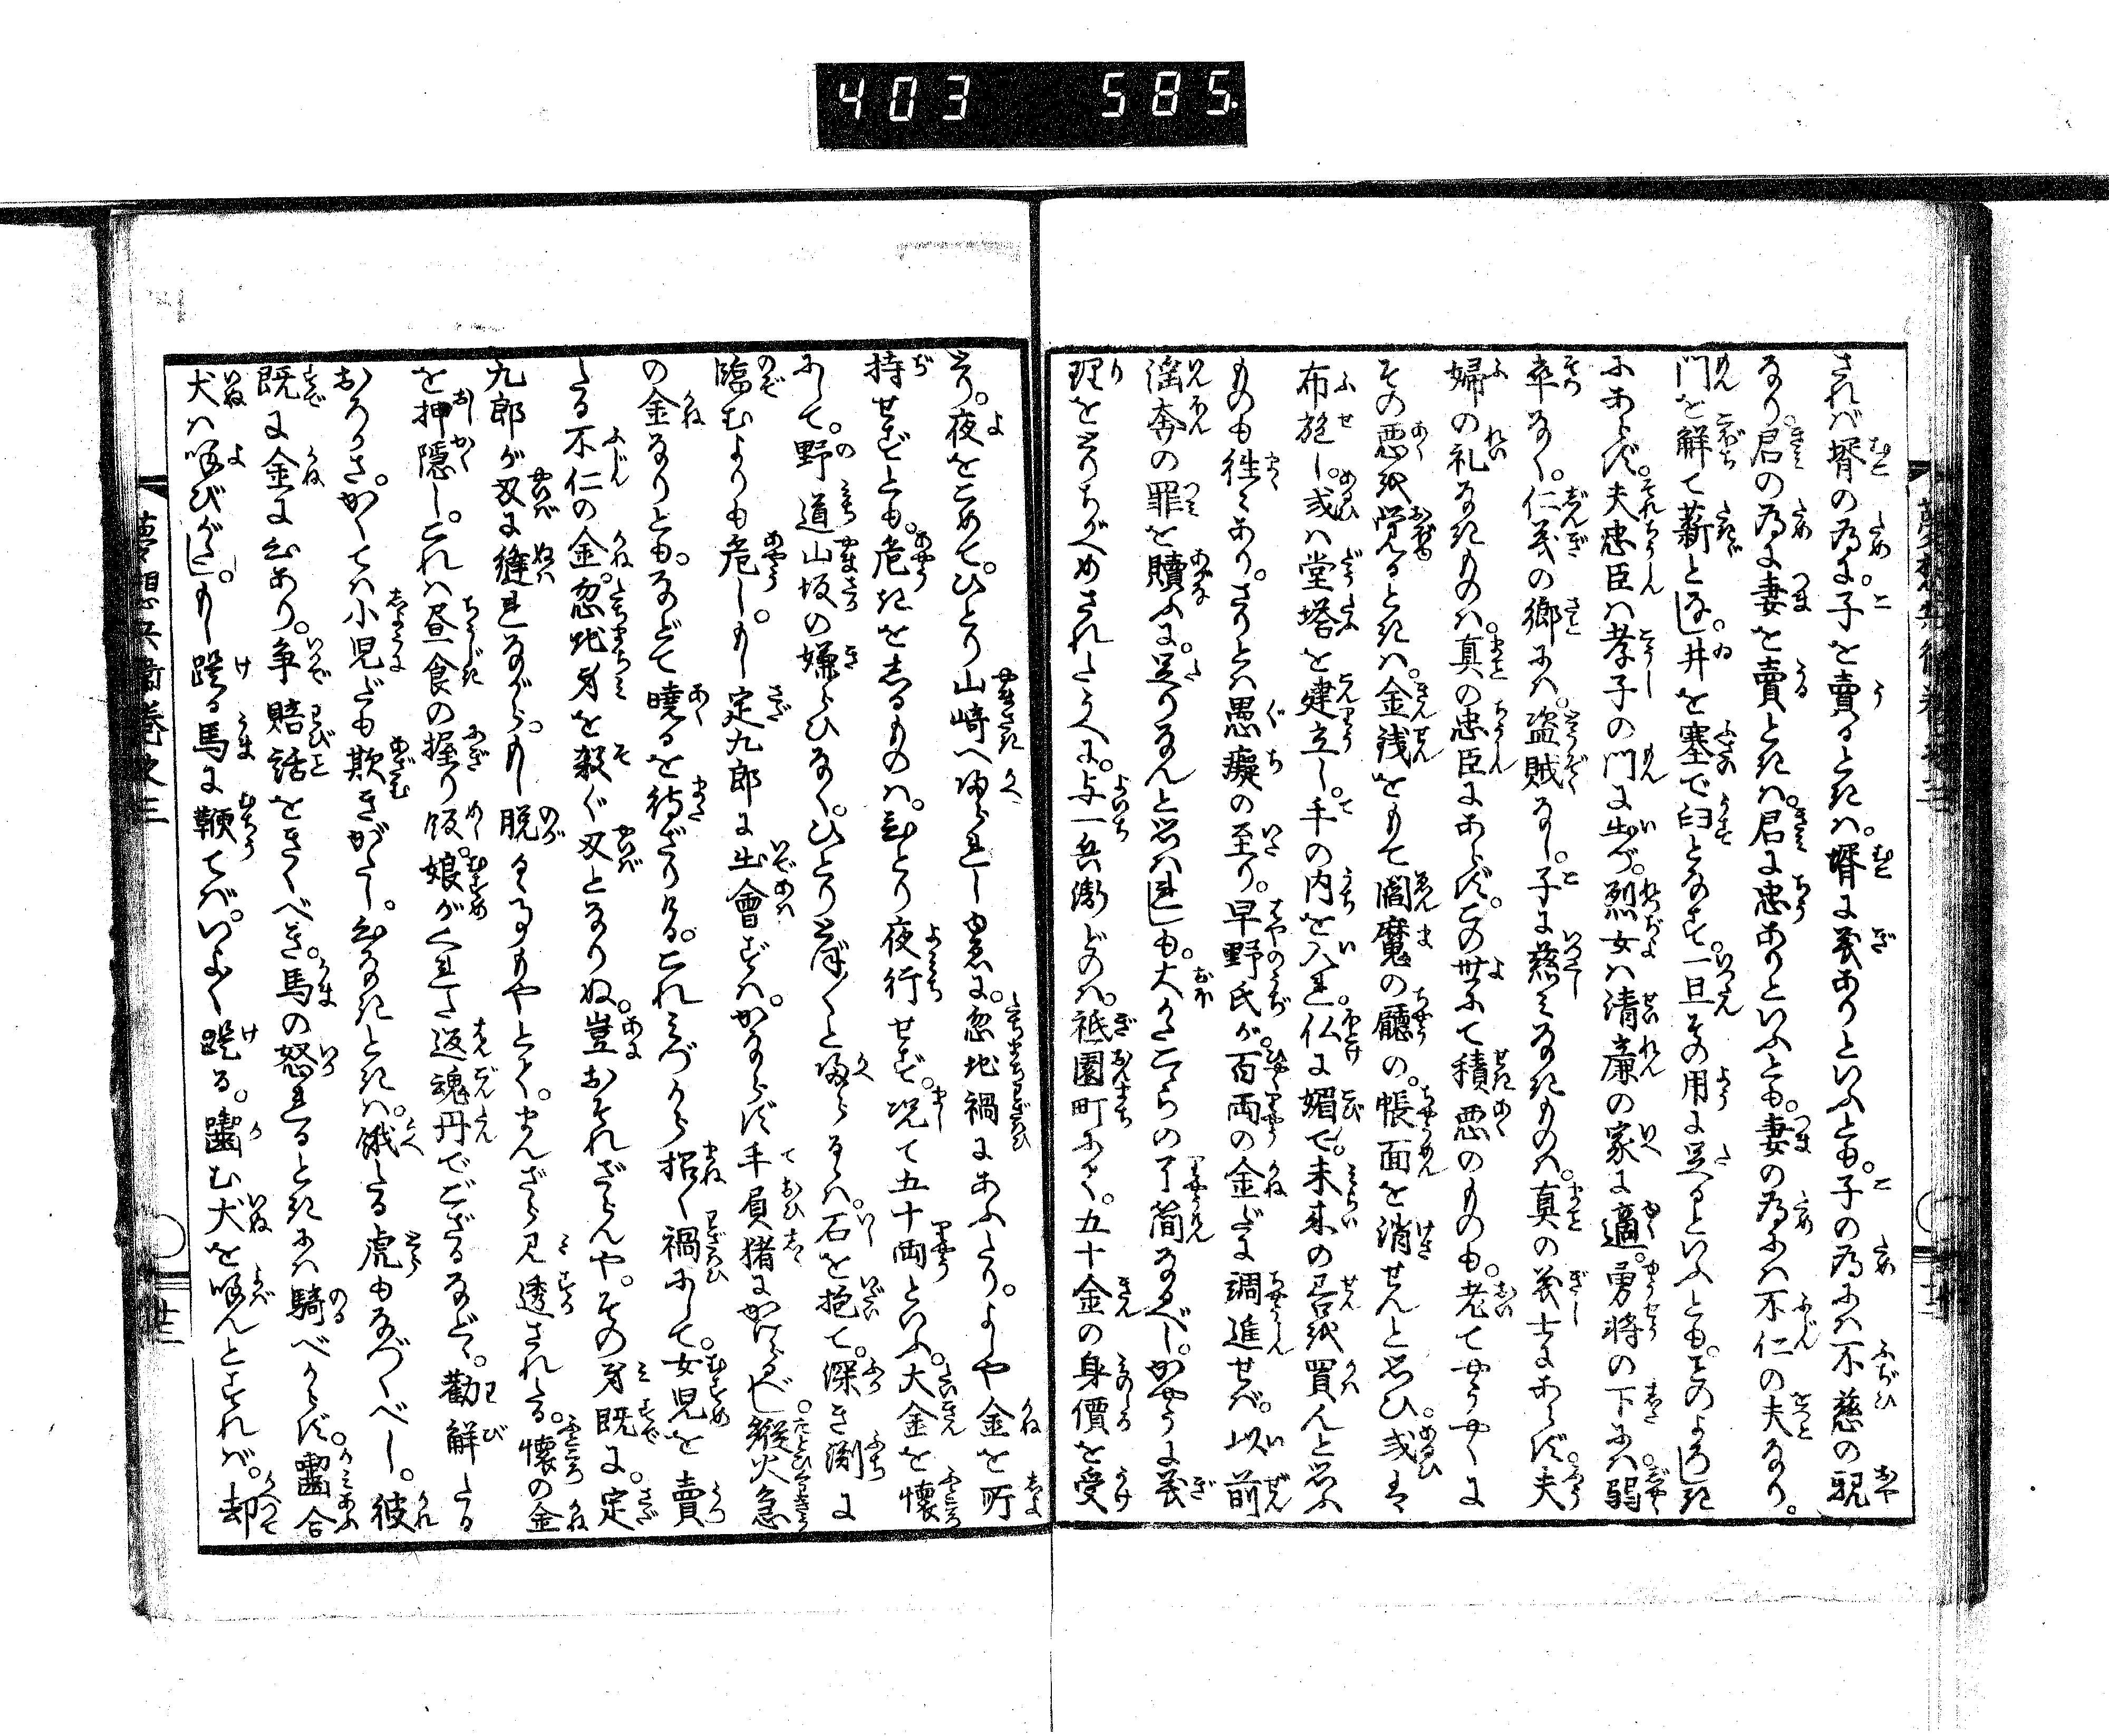 403 585.
されば壻の為に。子を賣るときは。壻に義ありといふとも。子の為には不慈の親
なり。君の為に妻を賣ときは。君に忠ありといふとも。妻の為には不仁の夫なり。
門を解て薪とし。井を塞で臼となす。一旦その用に足るといふとも。そのよろしき
にあらず。夫忠臣は孝子の門に出づ。烈女は清廉の家に適。勇将の下には弱
卒なく。仁義の郷には。盗賊なし。子に慈みなきものは。真の義士にあらず。夫
婦の礼なきものは。真の忠臣にあらず。この世にて積悪のものも。老てやうやくに
その悪を覚るときは。金銭をもて閻魔の廳の。帳面を消せんと思ひ。或は
布施し。或は堂塔を建立し。手の内を入れ。仏に媚て。未来の善を買んと思ふ
ものも徃々あり。さりとは愚癡の至り。早野氏が。百両の金だに調進せば。以前
淫奔の罪を贖ふに。足りなんと思はれしも。大かたこらの了簡なるべし。かやうに義
理をとりちがへめされたうへに。与一兵衛どのは。祇園町にて。五十金の身價を受
とり。夜をこめて。ひとり山崎へ帰られしゆゑに。忽地禍にあふたり。よしや金を所
持せずとも。危きを知るものは。ひとり夜行せず。况て五十両といふ。大金を懐
にして。野道山坂の嫌ひなく。ひとりとぼ〳〵と帰らるゝは。石を抱て。深き渕に
臨むよりも危し。もし定九郎に出會ずは。かならず手負猪にかけらるべし。縦火急
の金なりとも。などて暁るを待ざりける。これみづから招く禍にして。女児を賣
たる不仁の金。忽地身を殺ぐ刄となりぬ。豈おそれざらんや。その身既に。定
九郎が刄に縫れながら。もし脱るゝ事もやとて。まんざら見透されたる。懐の金
を押隠し。これは昼食の握り飯。娘がくれた返魂丹でござるなどゝ。勸解たる
おろかさ。かくては小児だも欺きがたし。ひもなきときは。餓たる虎もなづくべし。彼
既に金に心あり。争賠話をきくべき。馬の怒れるときには騎べからず。噛合
犬は喚びがたし。もし蹴る馬に鞭てば。いよ〳〵蹴る。噛む犬を喚んとすれば。却
夢想兵衛巻之三